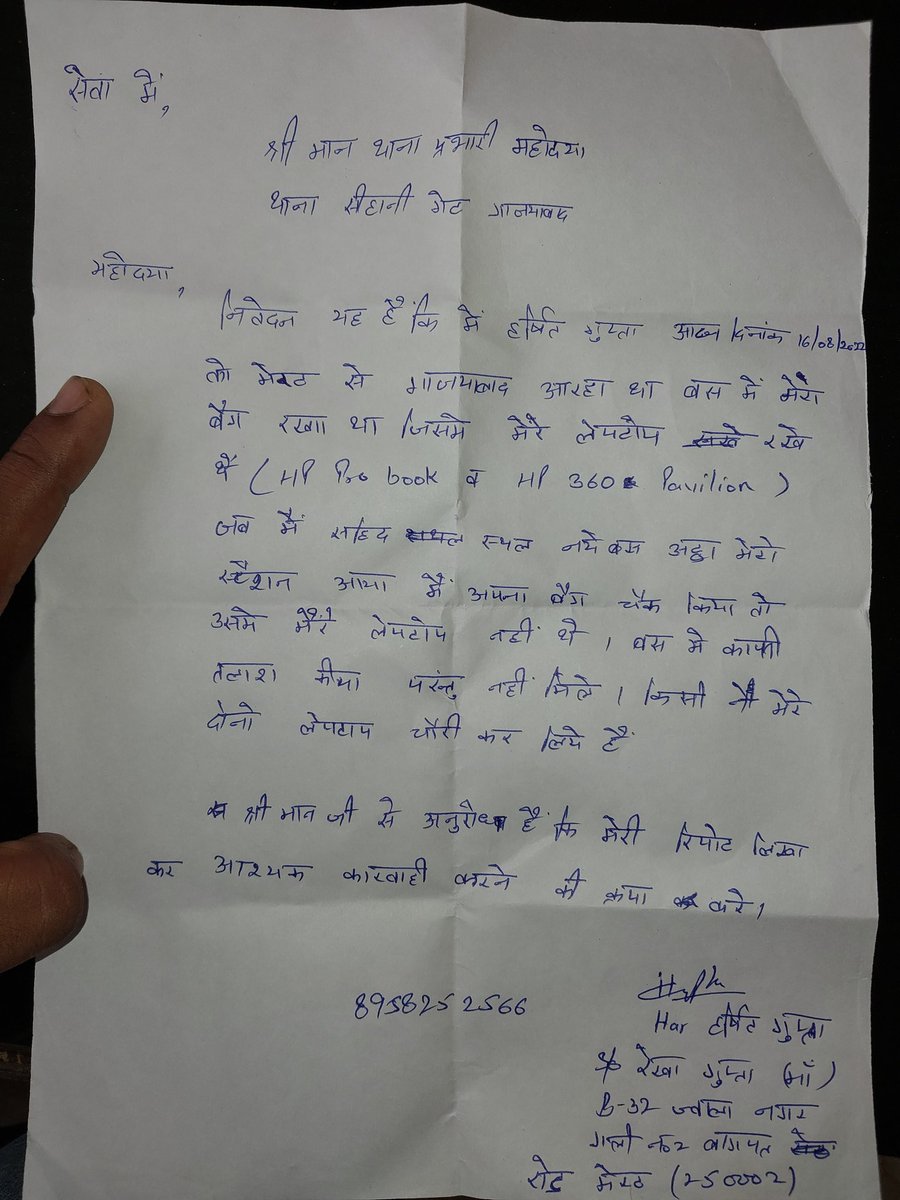 सेवा में,
श्री मान थाना प्रभारी महोदया
थाना सीहानी गेट गाजयाबाद
महोदया,
निवेदन यह हैं कि में हर्षित गुप्ता आज दिनांक 16/08/2022
को मेरठ से गाजयाबाद आरहा था बस में मेरा
बैग रखा था जिसमे मेरे लेपटोप रखे
थे (HP Pro book व HP 360 Pavilion)
जब मैं सहिद स्थल नये बस अड्डा मेरो
स्टैशन आया मैं अपना बैग चैक किया तो
उसमे मेरे लेपटोप नहीं थे । बस मे काफी
तलाश कीया परंन्तु नहीं मिले । किसी ने मेरे
दोनो लेपटाप चौरी कर लिये हैं
श्री मान जी से अनुरोध हैं कि मेरी रिपोट लिखा
कर आश्यक कारवाही करने की क्रपा करे ।
8958252566
Har हर्षित गुप्ता
S/o रेखा गुप्ता (माँ)
B-32 ज्वाला नगर
गली न०2 बागपत
रोड मेरठ (250002)